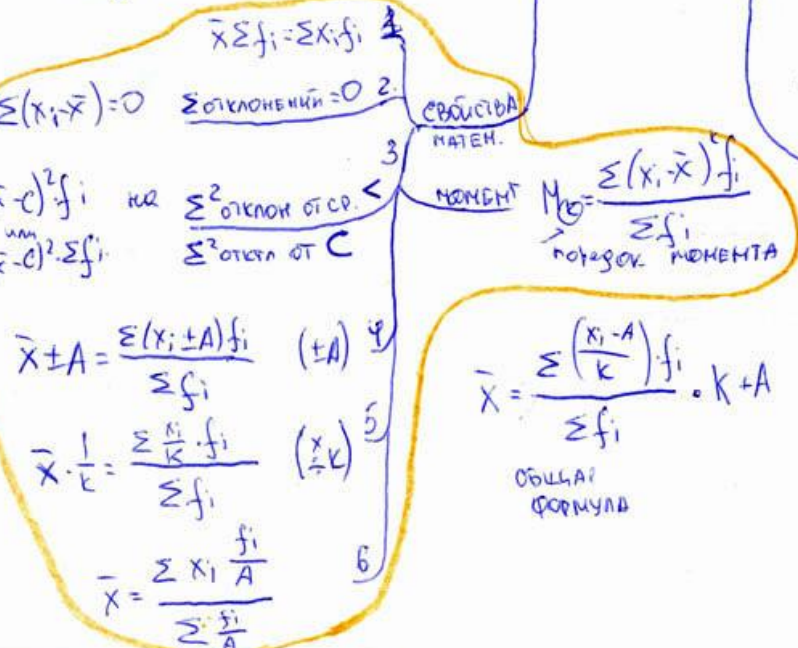 x̄Σfi=Σxifi 1
Σ(xi-x̄)=0 Σ отклонений=0 2.
СВОЙСТВА
МАТЕМ.
3
-c)²fi на Σ² отклон от ср. <
или
-c)²·Σfi Σ² откл от C
МОМЕНТ M(k)= Σ(xi-x̄)ᵏfi / Σfi
порядок МОМЕНТА
x̄±A= Σ(xi±A)fi / Σfi (±A) 4
x̄·1/k= Σ xi/k·fi / Σfi (×÷k) 5
x̄= Σ xi fi/A / Σ fi/A 6
x̄= Σ((xi-A)/k)·fi / Σfi · K+A
ОБЩАЯ
ФОРМУЛА